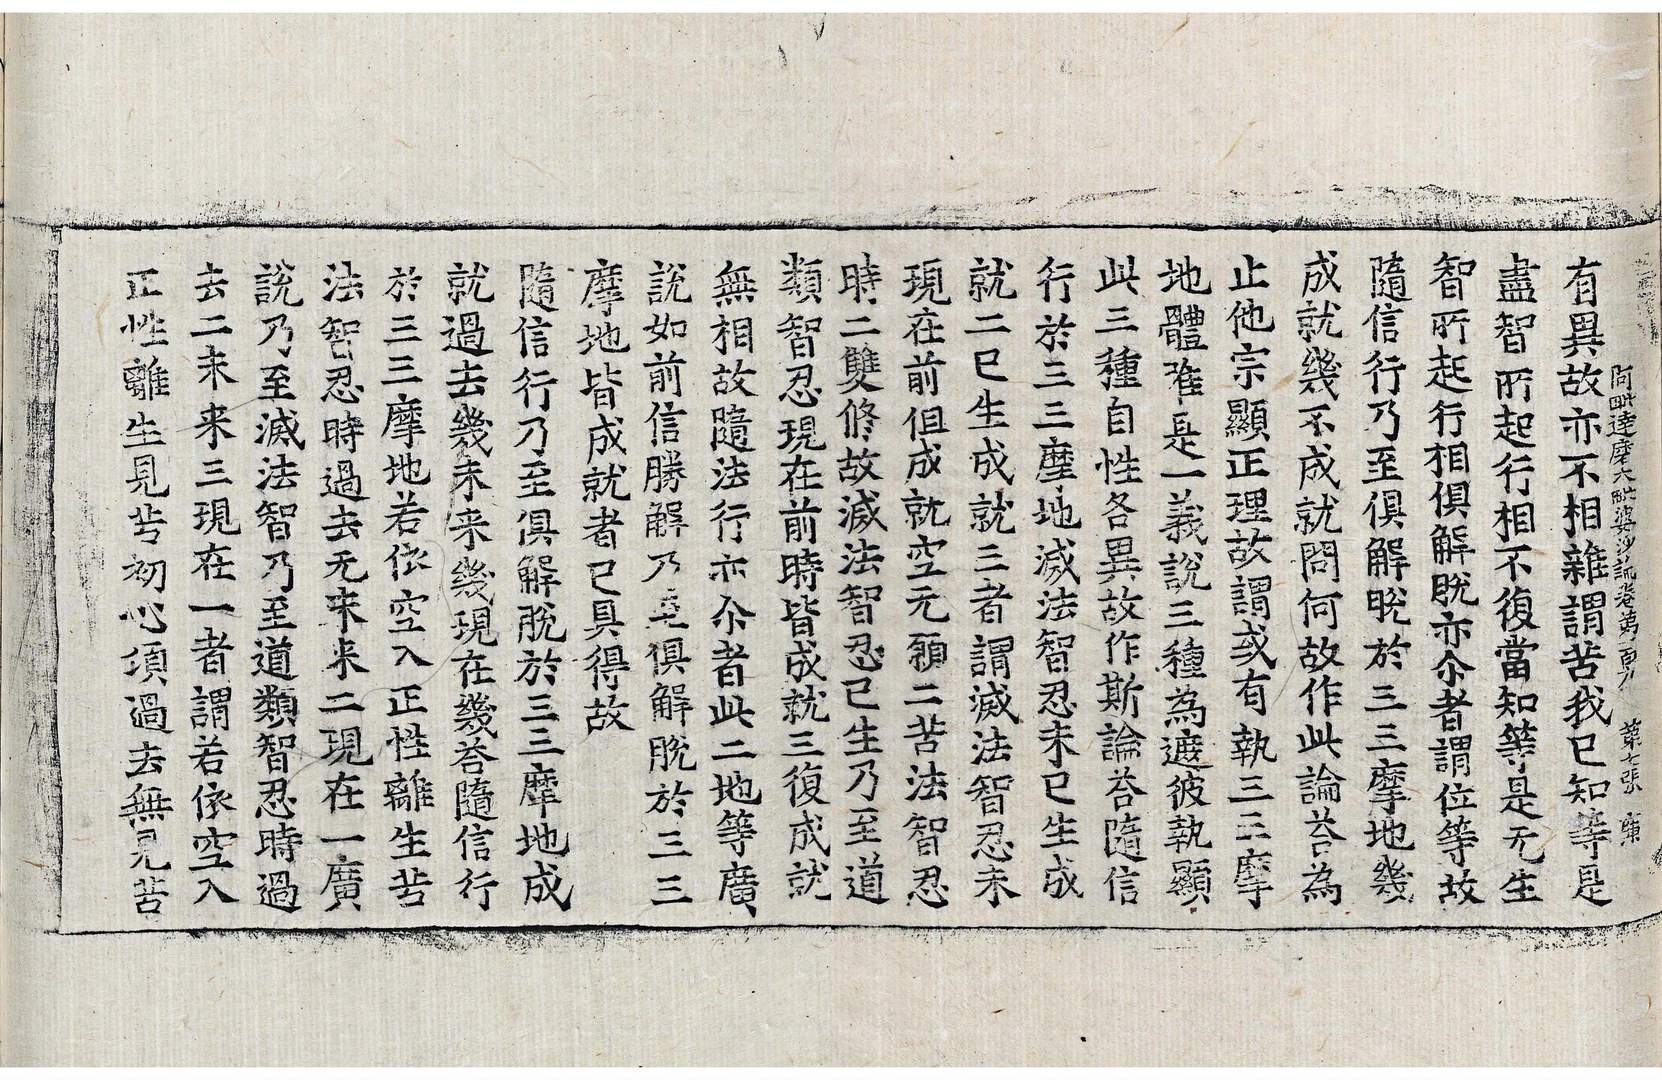 阿毗達磨大毗婆沙論卷第百八 第七張 策
有異故亦不相雜謂苦我已知等是
盡智所起行相不復當知等是无生
智所起行相俱解脫亦尒者謂位等故
隨信行乃至俱解脫於三三摩地幾
成就幾不成就問何故作此論荅為
止他宗顯正理故謂或有執三三摩
地體唯是一義說三種為遮彼執顯
此三種自性各異故作斯論荅隨信
行於三三摩地滅法智忍未已生成
就二已生成就三者謂滅法智忍未
現在前但成就空无願二苦法智忍
時二雙修故滅法智忍已生乃至道
類智忍現在前時皆成就三復成就
無相故隨法行亦尒者此二地等廣
說如前信勝解乃至俱解脫於三三
摩地皆成就者已具得故
隨信行乃至俱解脫於三三摩地成
就過去幾未来幾現在幾荅隨信行
於三三摩地若依空入正性離生苦
法智忍時過去无未来二現在一廣
說乃至滅法智乃至道類智忍時過
去二未来三現在一者謂若依空入
正性離生見苦初心須過去無見苦